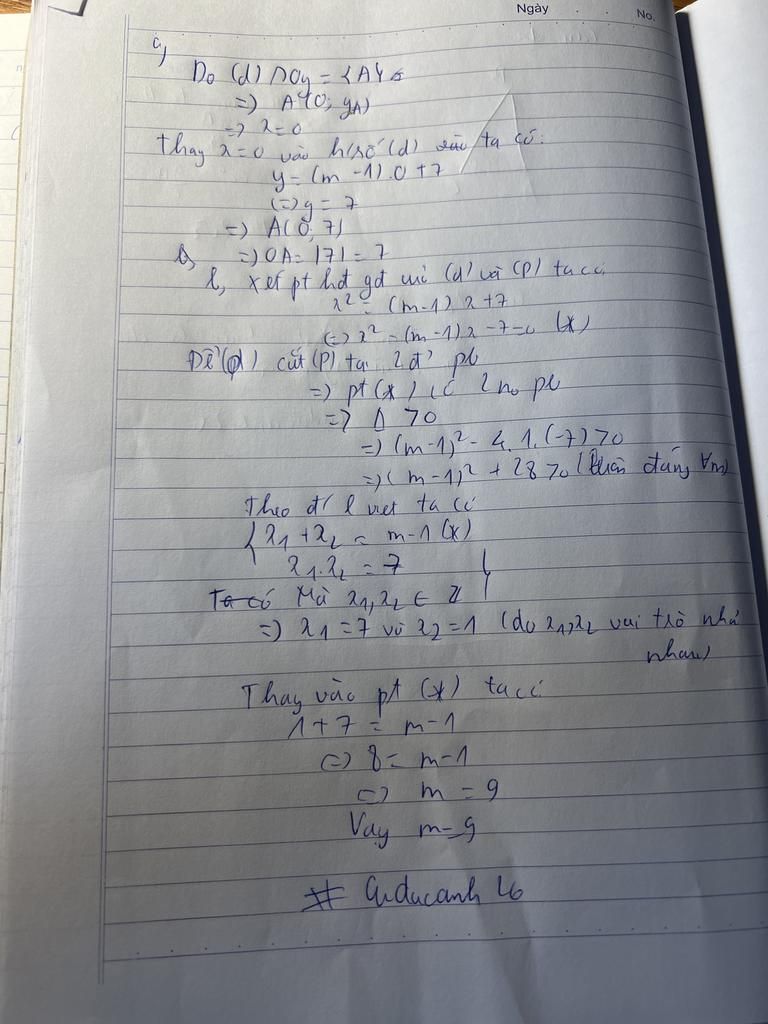 Ngày . . No.
c,
Do (d) ∩ Oy = {A}
=) A(0; yA)
=) x=0
Thay x=0 vào h/số (d) ta có:
y=(m-1).0+7
(=) y = 7
=) A(0,7)
=) OA= |7| = 7
b, xét pt hđ gđ (d) và (P) ta có
x² = (m-1)x+7
(=) x² -(m-1)x -7=0 (x)
Để (d) cắt (P) tại 2 đ' pb
=) pt (x) có 2 no pb
=) Δ >0
=) (m-1)² - 4.1.(-7) >0
=) (m-1)² + 28 >0 (luôn đúng ∀m)
Theo đl viet ta có
{ x1 + x2 = m-1 (x)
x1.x2 = 7
Ta có Mà x1,x2 ∈ Z
=) x1 =7 và x2 =1 (do x1,x2 vai trò như
nhau)
Thay vào pt (x) ta có
1+7 = m-1
(=) 8 = m-1
(=) m = 9
Vậy m=9